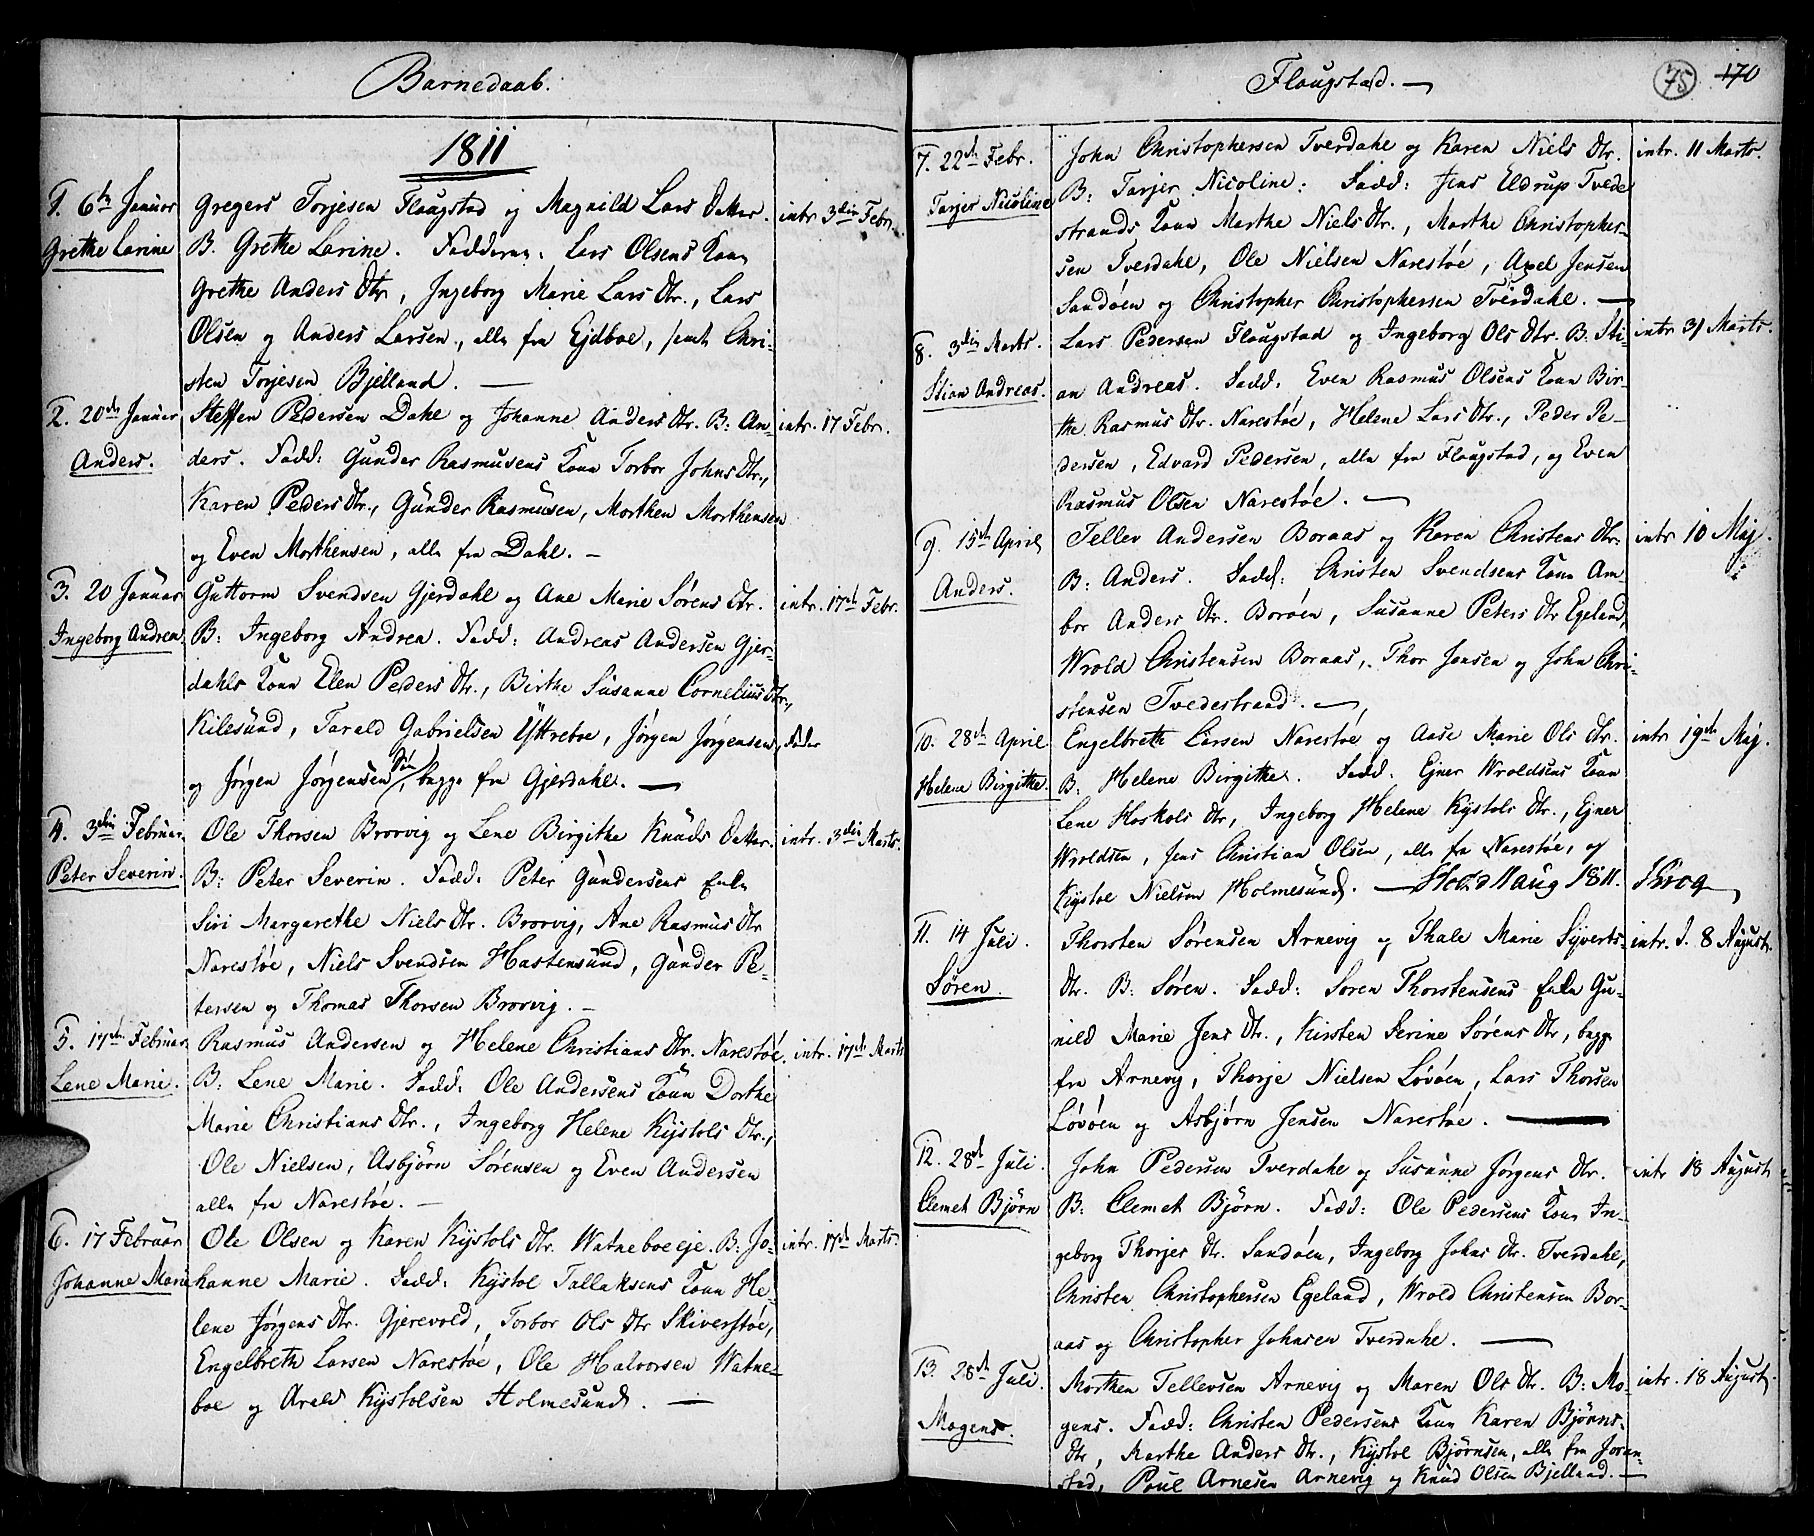 Barnedaab.
1811
1. 6te Januar
Grethe Larine
Gregers Torjesen Flougstad og Magnild Lars Datter.
intr. 3die Febr.
B. Grethe Larine. Fadderne: Lars Olsens Kone
Grethe Anders Dtr., Ingeborg Marie Lars Dtr., Lars
Olsen og Anders Larsen, alle fra Ejdboe, samt Chri-
sten Torjesen Bjelland. —
2. 20de Januar
Anders.
Steffen Pedersen Dahl og Johanne Anders Dtr. B: An-
intr. 17 Febr.
ders. Fadd: Gunder Rasmusens Kone Torbor Johns Dtr.,
Karen Peders Dtr., Gunder Rasmusen, Morthen Morthensen
og Even Morthensen, alle fra Dahl. —
3. 20 Januar
Ingeborg Andrea
Guttorm Svendsen Gjerdahl og Ane Marie Sørens Dtr.
intr. 17de Febr.
B: Ingeborg Andrea. Fadd: Andreas Andersen Gjer-
dahls Kone Elen Peders Dtr., Birthe Susanne Cornelius Dtr.,
Kilesund, Tarald Gabrielsen Yttreboe, Jørgen Jørgensen, Fader
og Jørgen Jørgensen Søn, begge fra Gjerdahl. —
4. 3die Februar
Peter Severin.
Ole Thorsen Brorvig og Lene Birgithe Knuds Datter.
intr. 3die Marts.
B: Peter Severin. Fadd: Peter Gundersens Enke
Siri Margrethe Niels Dtr. Brorvig, Ane Rasmus Dtr
Narestøe, Niels Svendsen Hastensund, Gunder Pe-
tersen og Thomas Thorsen Brorvig. —
5. 17de Februar
Lene Marie.
Rasmus Andersen og Helene Christians Dtr. Narestøe.
intr. 17de Marts
B: Lene Marie. Fadd: Ole Andersens Kone Dorthe
Marie Christians Dtr., Ingeborg Helene Kystols Dtr.,
Ole Nielsen, Asbjørn Sørensen og Even Andersen
alle fra Narestøe. —
6. 17 Februar
Johanne Marie
Ole Olsen og Karen Kystols Dtr. Watneboeeje. B: Jo-
intr. 17de Marts.
hanne Marie. Fadd: Kystol Tallaksens Kone He-
lene Jørgens Dtr. Gjerevold, Torbor Ols Dtr Skiverstøe,
Engelbreth Larsen Narestøe, Ole Halvorsen Watne-
boe og Arald Kystolsen Holmesund. —
Flougstad. —
75 170
7. 22de Febr.
Tarjer Nicoline
John Christophersen Tverdahl og Karen Niels Dtr.
intr. 11 Marts.
B: Tarjer Nicoline: Fadd: Jens Eldrup Tvede
strands Kone Marthe Niels Dtr., Marthe Christopher-
sen Tverdahl, Ole Nielsen Narestøe, Axel Jensen
Sandøen og Christopher Christophersen Tverdahl. —
8. 3die Marts.
Stian Andreas.
Lars Pedersen Flougstad og Ingeborg Ols Dtr. B: Sti-
intr 31 Marts.
an Andreas. Fadd: Even Rasmus Olsens Kone Bir-
the Rasmus Dtr. Narestøe, Helene Lars Dtr., Peder Pe-
dersen, Edvard Pedersen, alle fra Flougstad, og Even
Rasmus Olsen Narestøe. —
9. 15de April
Anders.
Tellev Andersen Boraas og Karen Christens Dtr.
intr 10 Maj.
B: Anders. Fadd: Christen Svendsens Kone Am-
bor Anders Dtr. Borøen, Susanne Peters Dtr Egeland,
Wrold Christensen Boraas, Thor Jensen og John Chri-
stensen Tvedestrand. —
10. 28de April
Helene Birgithe.
Engelbreth Larsen Narestøe og Aase Marie Ols Dtr.
intr 19de Maj.
B: Helene Birgithe. Fadd: Ejner Wroldsens Kone
Lene Hoskols Dtr, Ingeborg Helene Kystols Dtr., Ejner
Wroldsen, Jens Christian Olsen, alle fra Narestøe, og
Kystol Nielsen Holmesund. — Aug 1811. Krog
11. 14 Juli.
Søren.
Thorsten Sørensen Arnevig og Thale Marie Syverts
intr. d. 8 August.
Dtr. B: Søren. Fadd: Søren Thorstensens Enke Gu-
nild Marie Jens Dtr., Kirsten Serine Sørens Dtr., begge
fra Arnevig, Thorje Nielsen Løvøen, Lars Thorsen
Løvøen og Asbjørn Jensen Narestøe. —
12. 28de Juli.
Clemet Bjørn
John Pedersen Tverdahl og Susanne Jørgens Dtr.
intr 18 August
B: Clemet Bjørn. Fadd: Ole Pedersens Kone In-
geborg Thorjes Dtr. Sandøen, Ingeborg Johns Dtr. Tverdahl,
Christen Christophersen Egeland, Wrold Christensen Bor-
aas og Christopher Johnsen Tverdahl. —
13. 28de Juli.
Mogens.
Morthen Tellevsen Arnevig og Maren Ols Dtr. B: Mo-
intr. 18 August.
gens. Fadd: Christen Pedersens Kone Karen Bjørns
Dtr, Marthe Anders Dtr., Kystol Bjørnsen, alle fra Joran-
stad, Poul Arnesen Arnevig og Knud Olsen Bjelland. —